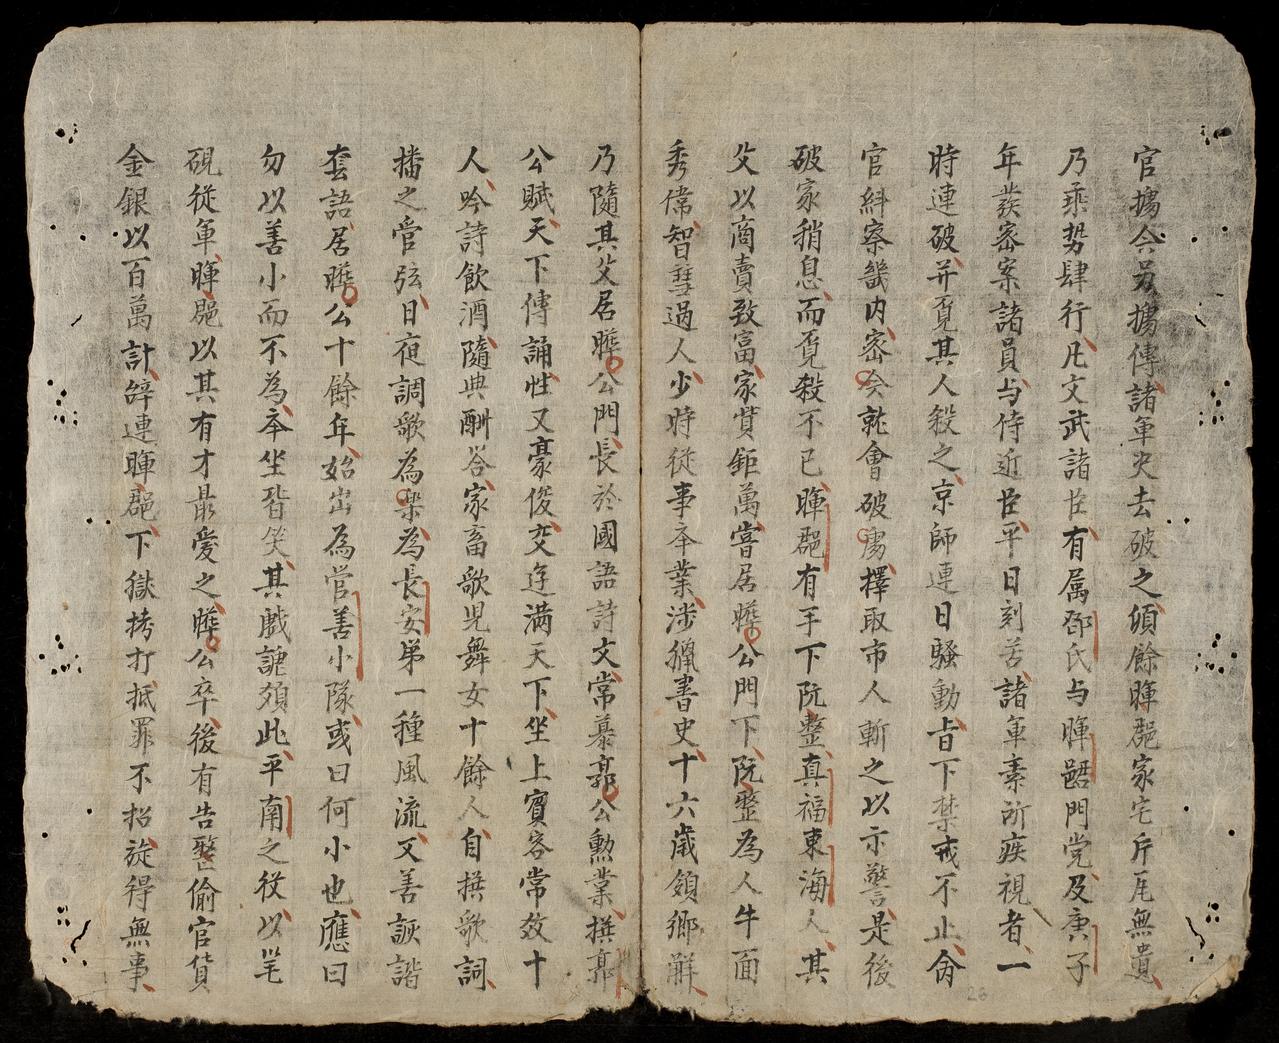 官擒會另擒傳諸軍史去破之傾餘暉郡家宅斤瓦無遺
乃乘势肆行凡文武諸臣有属鄧氏与暉郡門党及庚子
年發密案諸員与侍近臣平日刻苦諸軍素所疾視者一
時連破并覓其人殺之京師連日騷動旨下禁戒不止命
官糾察畿内密令就會破虜擇取市人斬之以示警是後
破家稍息而覓殺不已暉郡有手下阮整真福東海人其
父以商賣致富家貲鉅萬嘗居曄公門下阮整為人牛面
秀偉智慧過人少時從事本業涉獵書史十六歲領鄉解
乃隨其父居曄公門長於國語詩文常慕郭公勲業撰郭
公賦天下傳誦性又豪俊交遊满天下坐上賓客常效十
人吟詩飲酒隨典酬答家畜歌児舞女十餘人自撰歌詞
播之管弦日夜調歌為樂為長安弟一種風流又善詼諧
套語居曄公十餘年始出為管善小隊或曰何小也應曰
勿以善小而不為本坐皆笑其戲謔類此平南之役以笔
硯從軍暉郡以其有才最愛之曄公卒後有告整偷官貨
金銀以百萬計辞連暉郡下獄拷打抵罪不招旋得無事